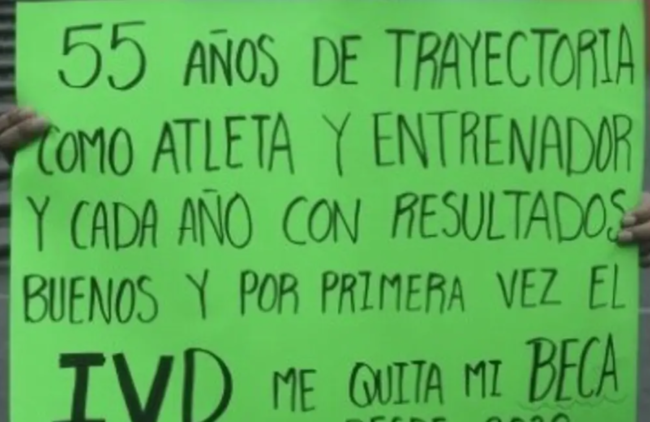 55 AÑOS DE TRAYECTORIA
COMO ATLETA Y ENTRENADOR
Y CADA AÑO CON RESULTADOS
BUENOS Y POR PRIMERA VEZ EL
IVD ME QUITA MI BECA